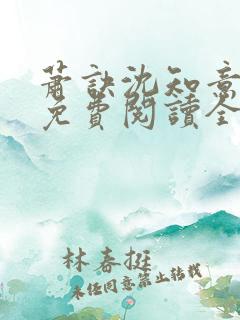 蕭訣沈知意
免費閱讀全
林春挺
未经同意禁止转载